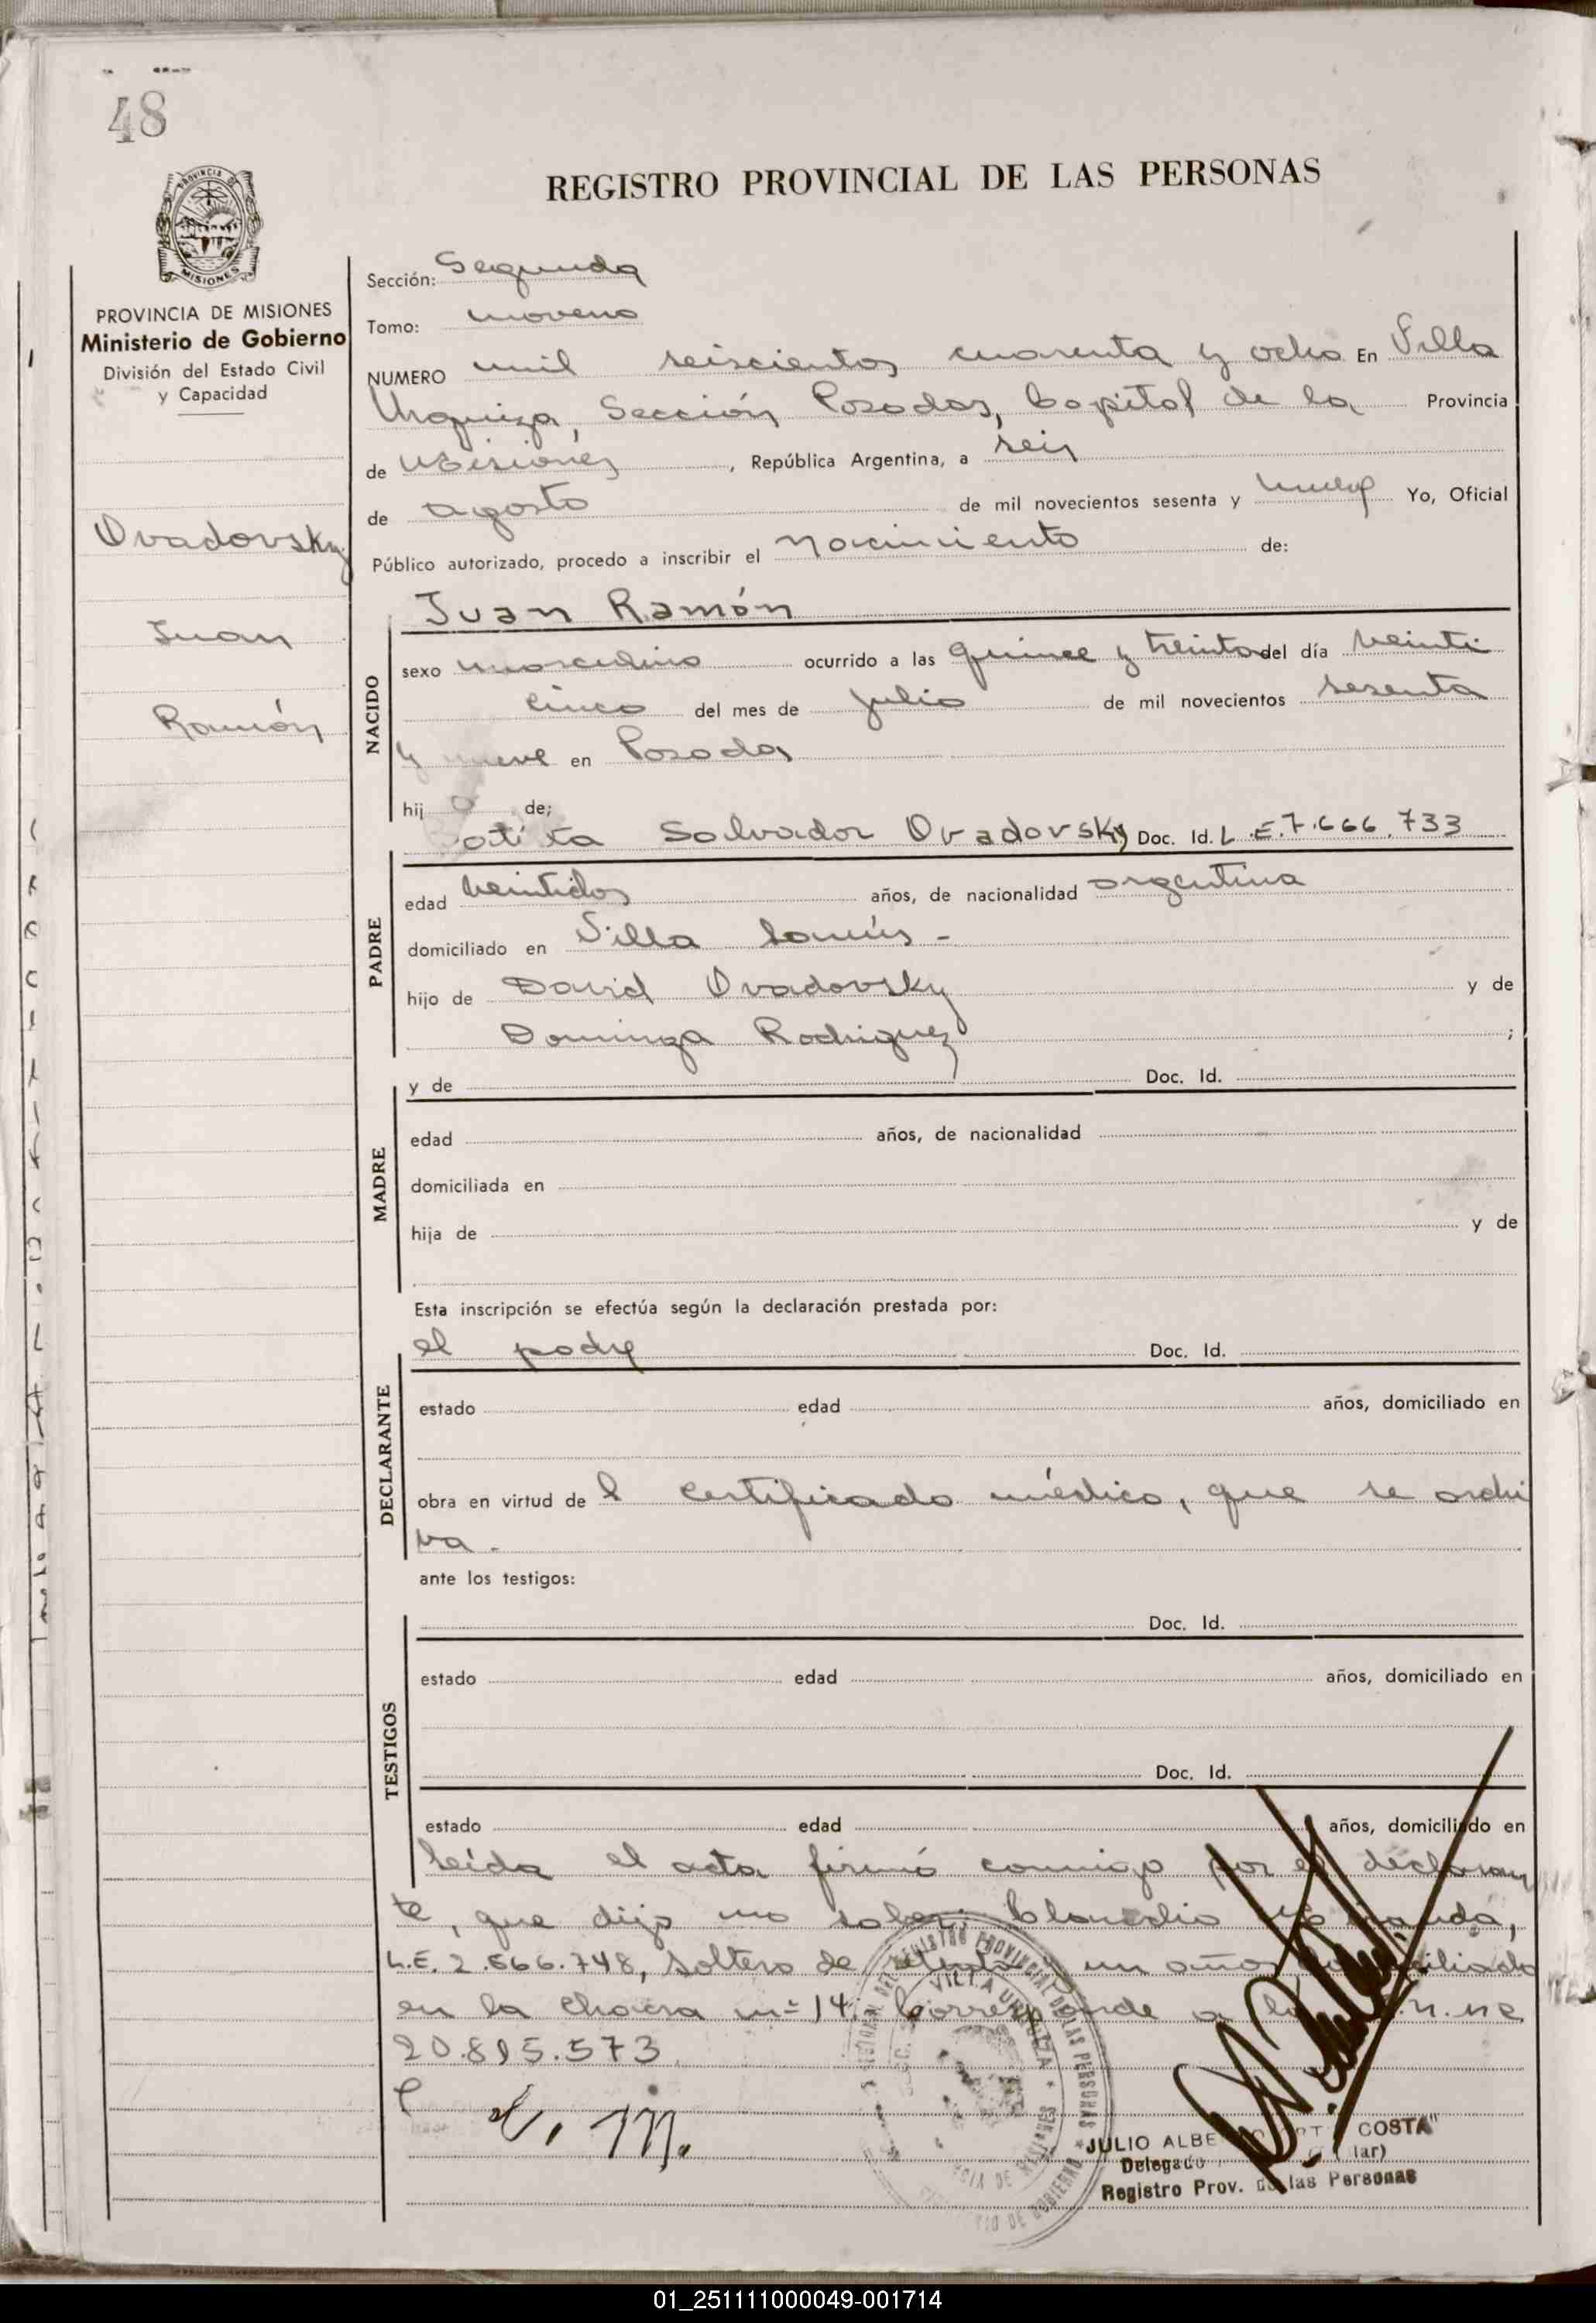 48
REGISTRO PROVINCIAL DE LAS PERSONAS
PROVINCIA DE MISIONES
Ministerio de Gobierno
División del Estado Civil
y Capacidad
Ovadovsky
Juan
Ramón
Sección: Segunda
Tomo: noveno
NUMERO mil seiscientos cuarenta y ocho En Villa
Urquiza, Sección Posadas, Capital de la Provincia
de Misiones, República Argentina, a seis
de agosto de mil novecientos sesenta y nueve Yo, Oficial
Público autorizado, procedo a inscribir el nacimiento de:
NACIDO
Juan Ramón
sexo masculino ocurrido a las quince y treinta del día veinti
cinco del mes de julio de mil novecientos sesenta
y nueve en Posadas
hijo de;
Salvador Ovadovsky Doc. Id. L.E. 7.666.733
PADRE
edad veintidos años, de nacionalidad argentina
domiciliado en Villa Lanús -
hijo de David Ovadovsky y de
Dominga Rodriguez ;
MADRE
y de Doc. Id.
edad años, de nacionalidad
domiciliada en
hija de y de
Esta inscripción se efectúa según la declaración prestada por:
DECLARANTE
el padre Doc. Id.
estado edad años, domiciliado en
obra en virtud de l certificado médico, que se archi
va -
ante los testigos:
TESTIGOS
Doc. Id.
estado edad años, domiciliado en
Doc. Id.
estado edad años, domiciliado en
Leida el acta firmó conmigo por el declaran
te, que dijo no saber:
L.E. 2.566.748, soltero de setenta y un años domiciliado
en la chacra nº 14. Corresponde a
20.815.573
REGISTRO PROVINCIAL DE LAS PERSONAS
VILLA URQUIZA
JULIO ALBE COSTA"
Delegado
Registro Prov. de las Personas
01_251111000049-001714